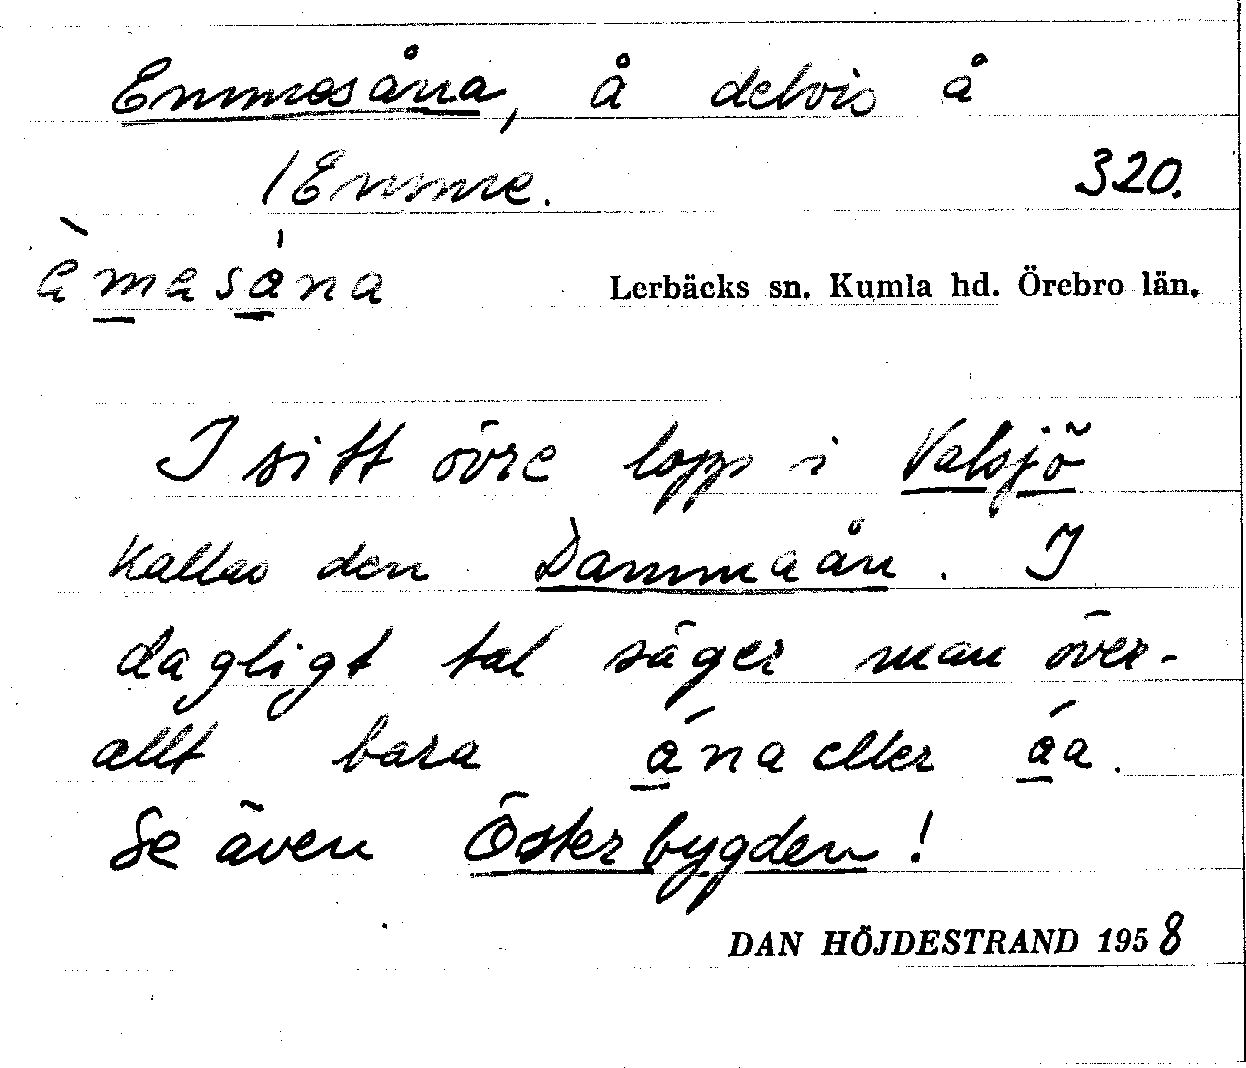 Emmesåna, å delvis å
1 Emme. 320.
èmesána
Lerbäcks sn. Kumla hd. Örebro län.
I sitt övre lopp i Valsjö
kallas den Dammaån. I
dagligt tal säger man över-
allt bara ána eller áa.
Se även Österbygden!
DAN HÖJDESTRAND 1958